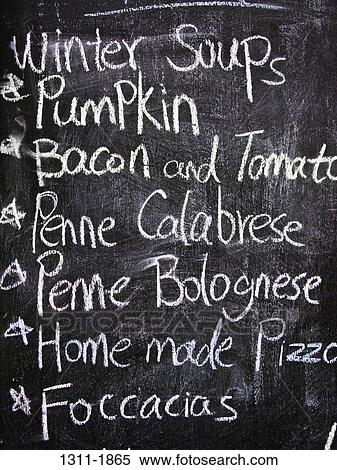 Winter Soups
Pumpkin
Bacon and Tomato
Penne Calabrese
Penne Bolognese
FOTOSEARCH
Home made Pizza
Foccacias
1311-1865 www.fotosearch.com